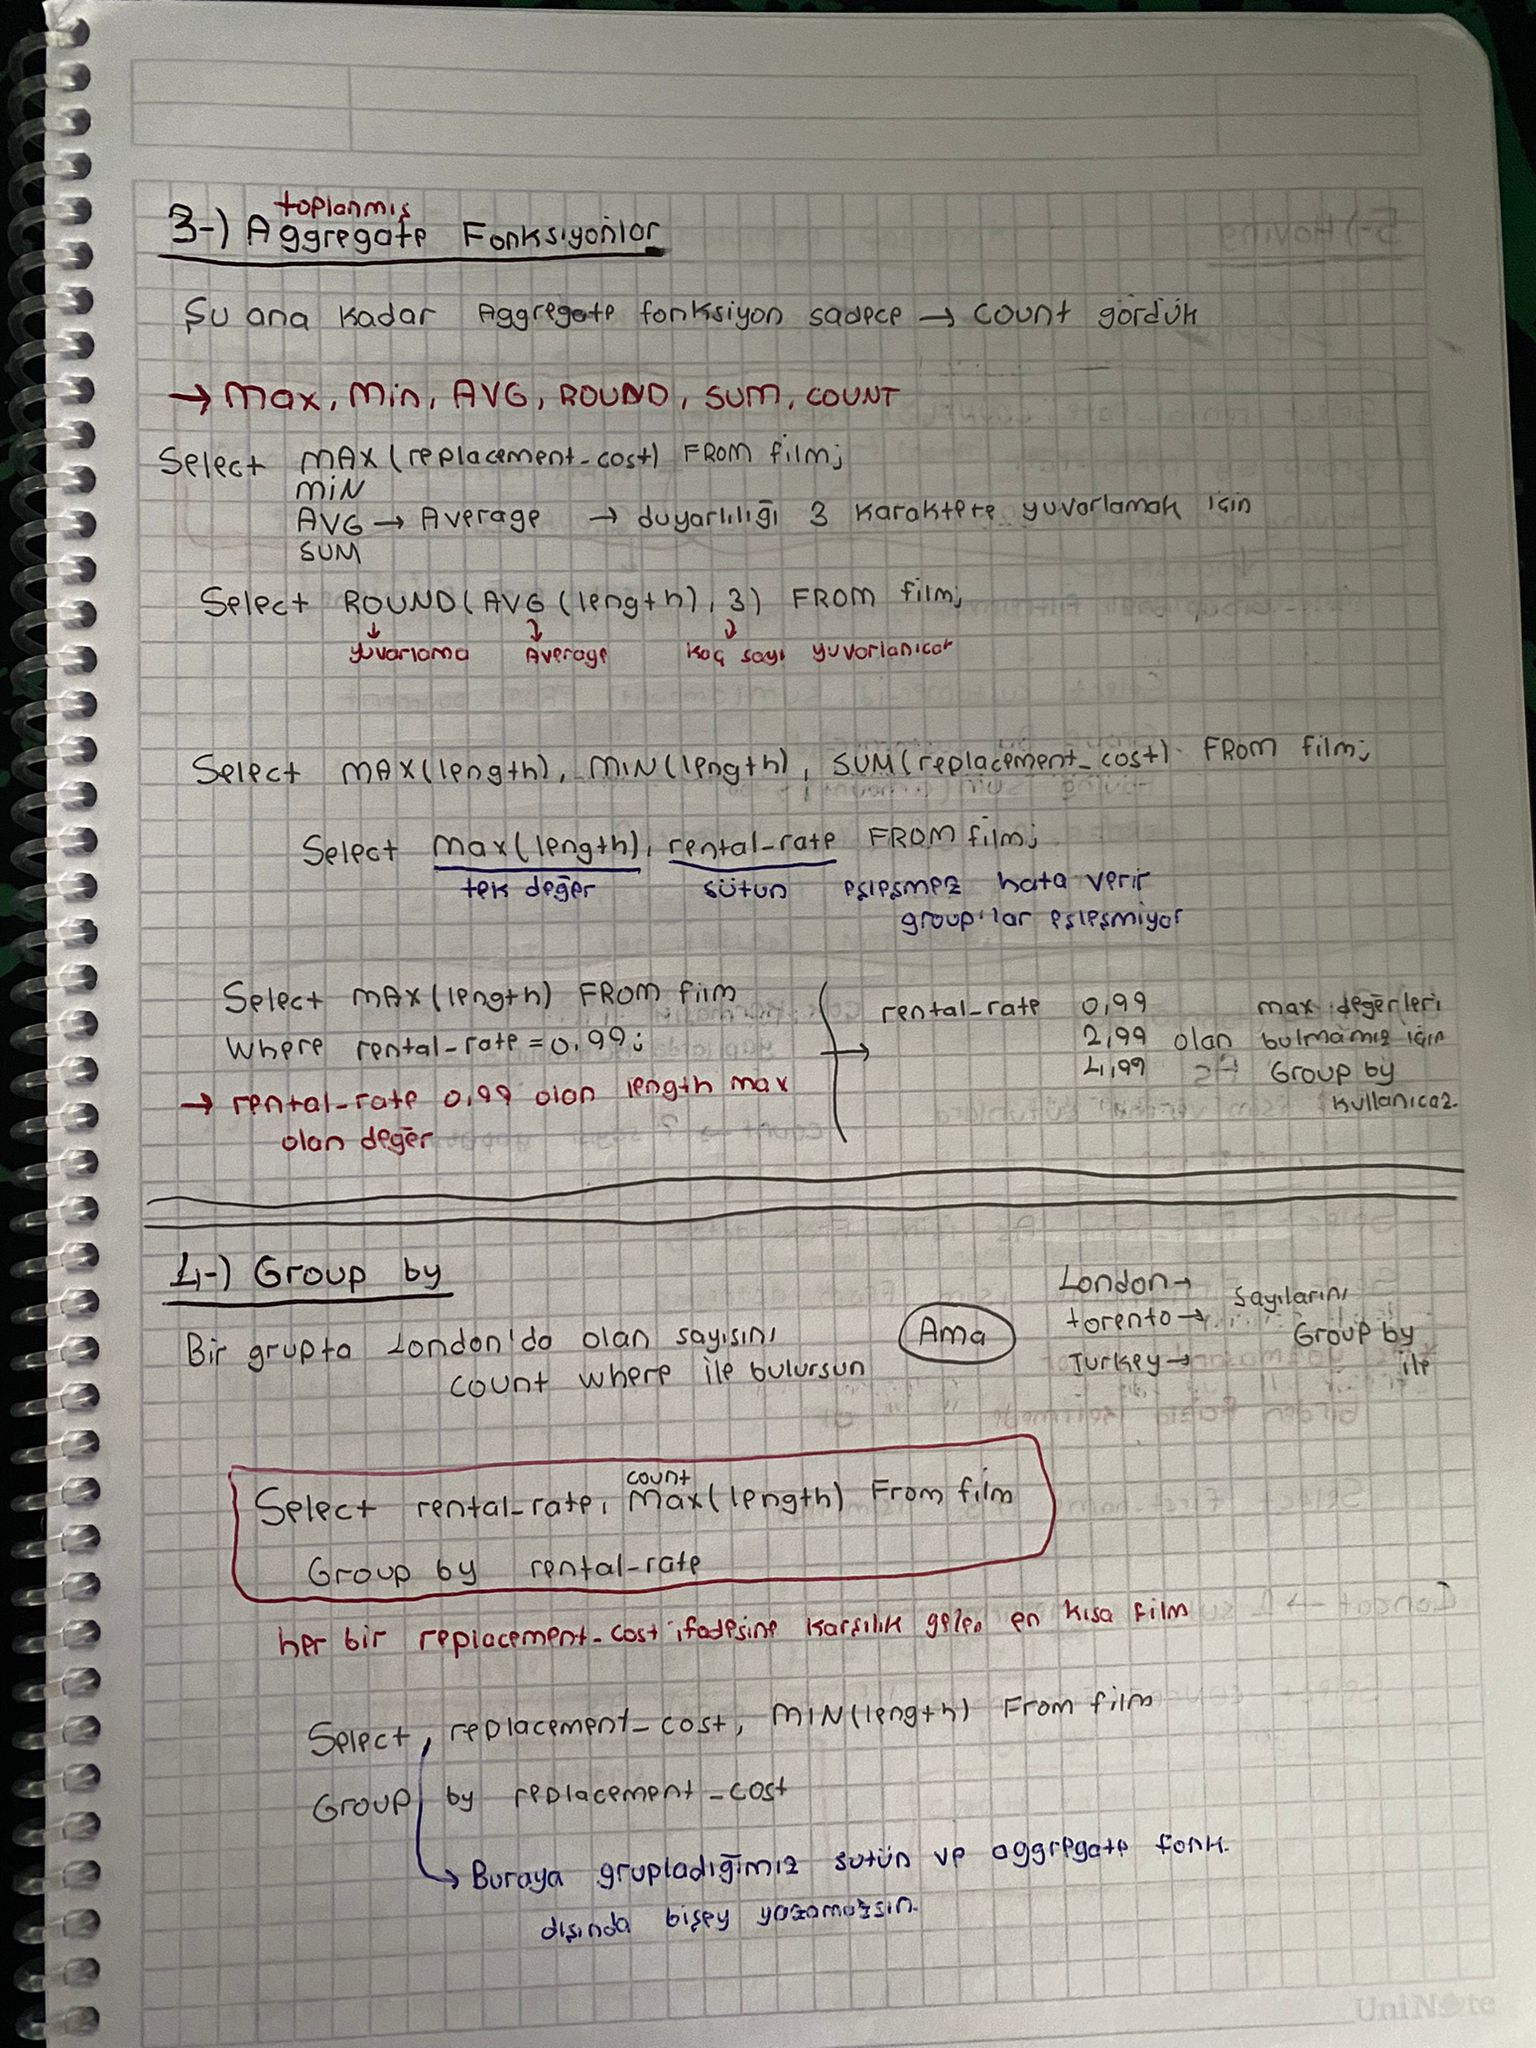 toplanmış
3-) Aggregate Fonksiyonlar
Şu ana kadar Aggregate fonksiyon sadece → count gördük
→ Max, Min, AVG, ROUND, SUM, COUNT
Select MAX(replacement_cost) FROM film;
MiN
AVG → Average → duyarlılığı 3 karaktere yuvarlamak için
SUM
Select ROUND(AVG(length), 3) FROM film;
yuvarlama Average kaç sayı yuvarlanıcak
Select MAX(length), MIN(length), SUM(replacement_cost) FROM film;
Select max(length), rental_rate FROM film;
tek değer sütun eşleşmez hata verir
group'lar eşleşmiyor
Select MAX(length) FROM film
Where rental_rate = 0.99;
→ rental_rate 0,99 olan length max
olan değer
→ rental_rate 0,99 max değerleri
2,99 olan bulmamız için
4,99 Group by
kullanıcaz.
4-) Group by
Bir grupta London'da olan sayısını
count where ile bulursun
Ama
London →
torento →
Turkey →
Sayılarını
Group by
ile
count
Select rental_rate, Max(length) From film
Group by rental_rate
her bir replacement_cost ifadesine karşılık gelen en kısa film
Select, replacement_cost, MIN(length) From film
Group by replacement_cost
→ Buraya grupladığımız sutün ve aggregate fonk.
dışında bişey yazamazsın.
UniNote